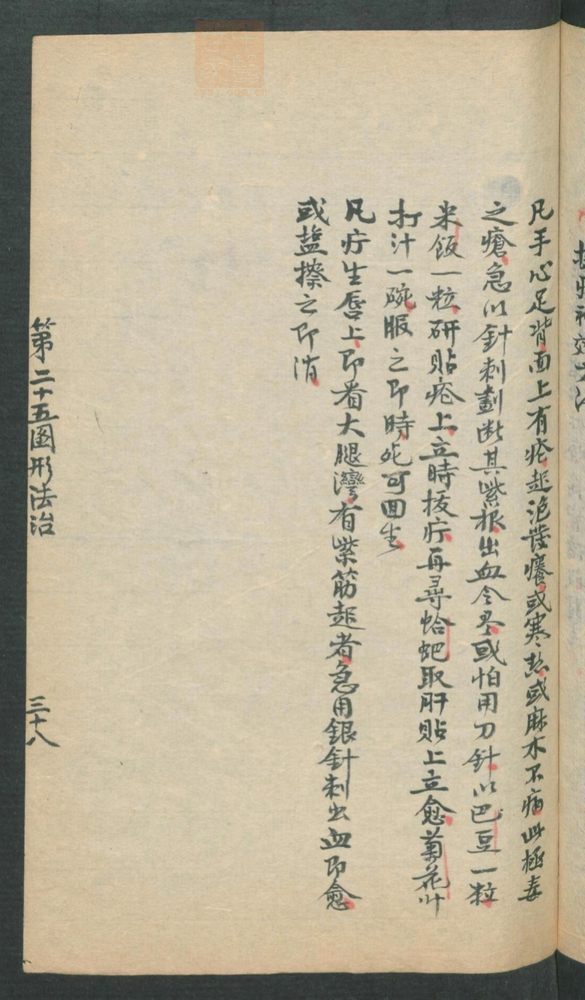 凡手心足背面上有疮起泡發癢或寒熱或麻木不痛此極毒
之瘡急以針刺劃断其紫根出血令尽或怕用刀針以巴豆一粒
米飯一粒研貼疮上立時拔疔再尋蛤蚆取肝貼上立愈菊花叶
打汁一碗服之即時死可回生
凡疔生唇上即看大腿灣有紫筋起者急用銀針刺出血即愈
或盐擦之即消
第二十五圖形法治
三十八